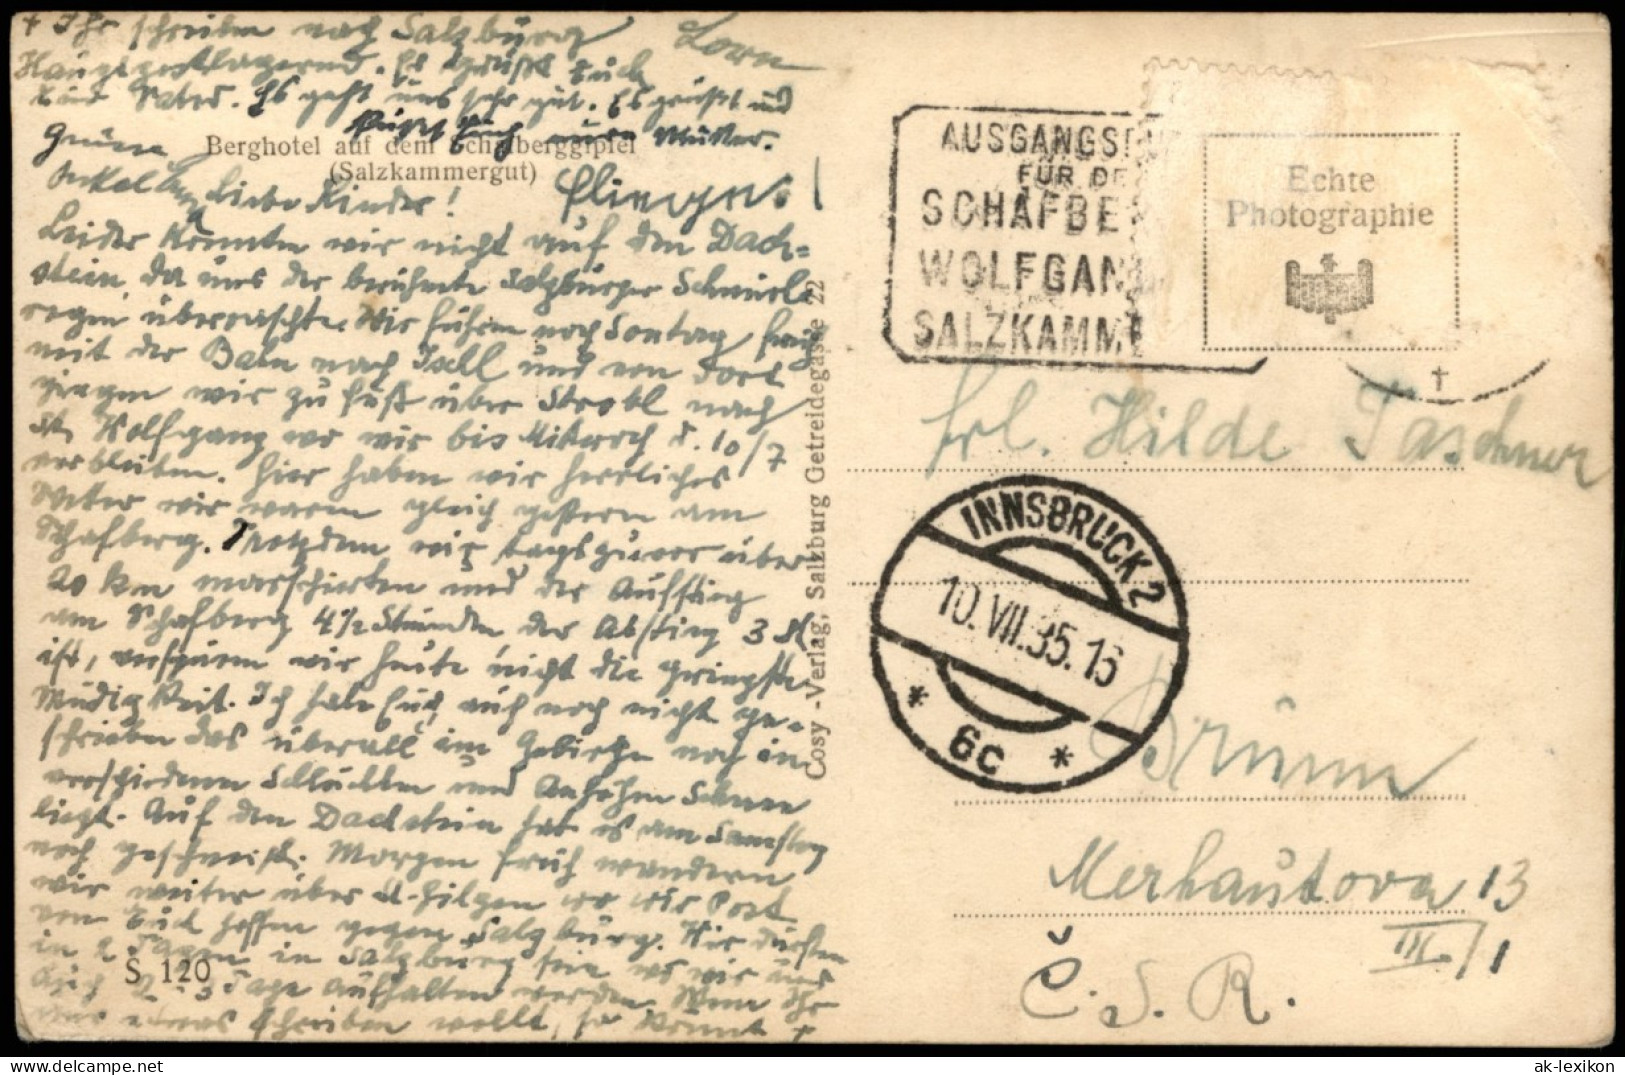 + Ihr schreiben nach Salzburg
Hauptpostlagernd. Es grüßt Euch
Euer Vater. Es geht uns sehr gut. Es grüßt und
küßt Euch eure Mutter.
Berghotel auf dem Schafberggipfel
(Salzkammergut)
Onkel
Liebe Kinder!
Leider konnten wir nicht auf den Dach-
stein, da uns der berühmte Salzburger Schnürle
regen überraschte. Wir fuhren noch Sontag früh
mit der Bahn nach Ischl und von dort
giengen wir zu Fuß über Strobl nach
St. Wolfgang wo wir bis Mitwoch d. 10/7
verbleiben. Hier haben wir herrliches
Wetter wir waren gleich gestern am
Schafberg. Trotzdem wir tags zuvor über
20 km marschierten und der Aufstieg
am Schafberg 4½ Stunden der Abstieg 3 St.
ist, verspüren wir heute nicht die geringste
Müdigkeit. Ich habe Euch auch noch nicht ge-
schrieben das überall im Gebirge noch in
verschiedenen Schluchten und Anhöhen Schnee
liegt. Auf den Dachstein hat es am Samstag
noch geschneit. Morgen früh wandern
wir weiter über St. Gilgen wo wir Post
von Euch hoffen gegen Salzburg. Wir dürften
in 2 Tagen in Salzburg sein wo wir uns
auch 2-3 Tage aufhalten werden. Wenn Ihr
uns etwas schreiben wollt, so könnt +
S 120
Cosy - Verlag, Salzburg Getreidegasse 22
AUSGANGS
FÜR DE
SCHAFBE
WOLFGAN
SALZKAMM
Echte
Photographie
Frl. Hilde Taschner
INNSBRUCK 2
10. VII. 35. 16
* 6c *
Brünn
Merhautova 13
III/1
Č. S. R.
ak-lexikon